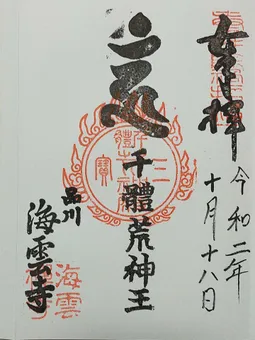 奉拝
令和二年
十月十八日
千體荒神王
品川
海雲寺
海雲